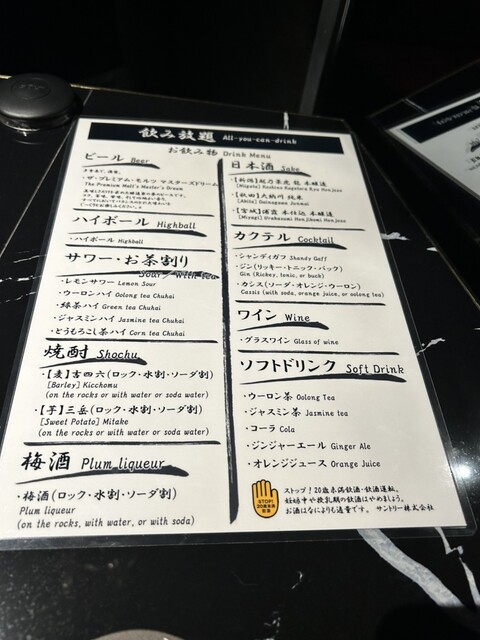 飲み放題 All-you-can-drink
お飲み物 Drink Menu
ビール Beer
・ザ・プレミアム・モルツ マスターズドリーム
The Premium Malt's Master's Dream
ハイボール Highball
・ハイボール Highball
サワー・お茶割り
Sour / With tea
・レモンサワー Lemon Sour
・ウーロンハイ Oolong tea Chuhai
・緑茶ハイ Green tea Chuhai
・ジャスミンハイ Jasmine tea Chuhai
・とうもろこし茶ハイ Corn tea Chuhai
焼酎 Shochu
・【麦】吉四六(ロック・水割・ソーダ割)
[Barley] Kicchomu
(on the rocks or with water or soda water)
・【芋】三岳(ロック・水割・ソーダ割)
[Sweet Potato] Mitake
(on the rocks or with water or soda water)
梅酒 Plum liqueur
・梅酒(ロック・水割・ソーダ割)
Plum liqueur
(on the rocks, with water, or with soda)
日本酒 Sake
カクテル Cocktail
・シャンディガフ Shandy Gaff
・ジン(リッキー・トニック・バック)
Gin (Rickey, tonic, or buck)
・カシス(ソーダ・オレンジ・ウーロン)
Cassis (with soda, orange juice, or oolong tea)
ワイン Wine
・グラスワイン Glass of wine
ソフトドリンク Soft Drink
・ウーロン茶 Oolong Tea
・ジャスミン茶 Jasmine tea
・コーラ Cola
・ジンジャーエール Ginger Ale
・オレンジジュース Orange Juice
STOP!
ストップ!20歳未満飲酒・飲酒運転。
妊娠中や授乳期の飲酒はやめましょう。
お酒はなによりも適量です。 サントリー株式会社